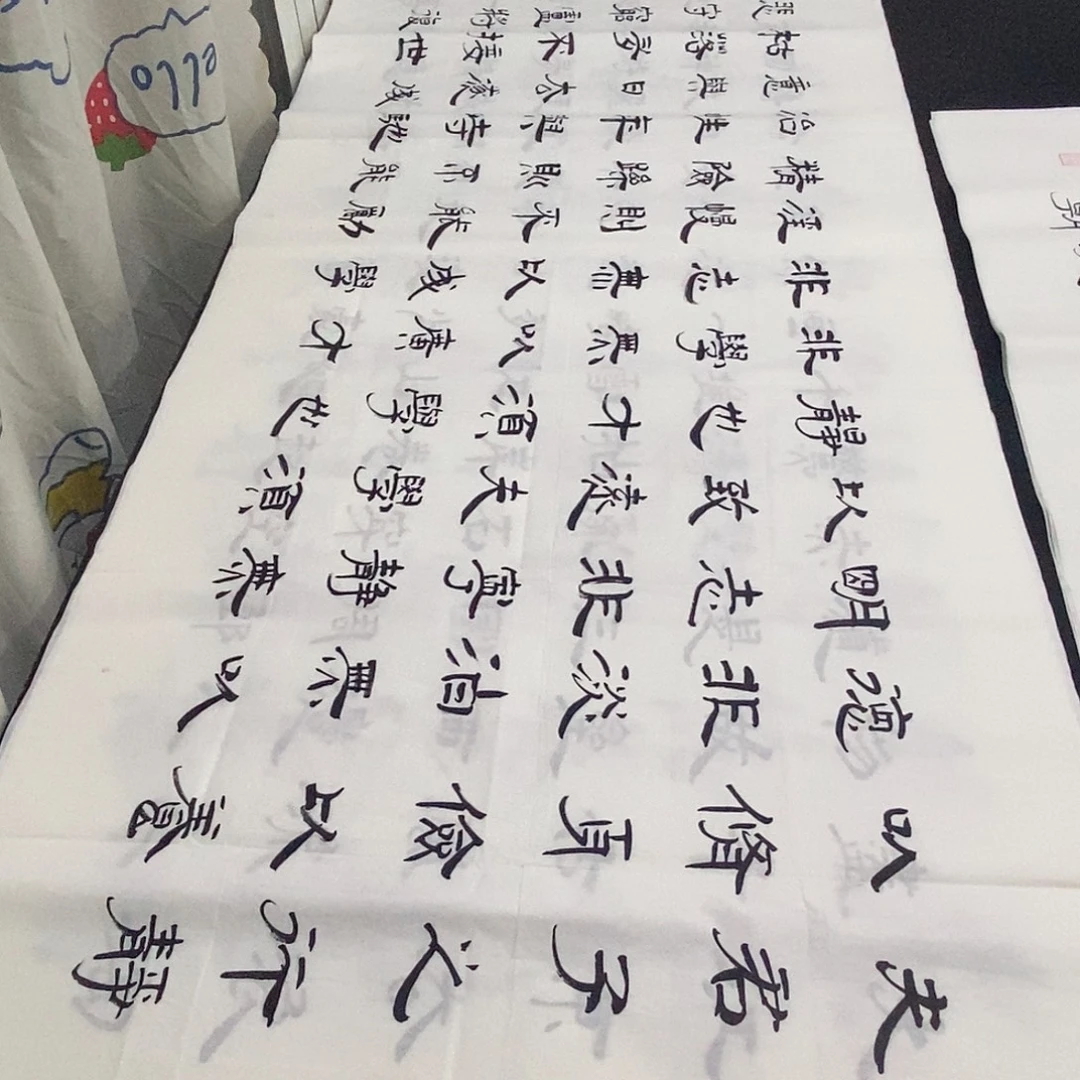 夫君子之行靜
以脩身儉以養
德非淡泊無以
明志非寧靜無
以致遠夫學須
靜也才須學也
非學無以廣才
非志無以成學
淫慢則不能勵
精險躁則不能
治性年與時馳
意與日去遂成
枯落多不接世
悲守窮廬將復